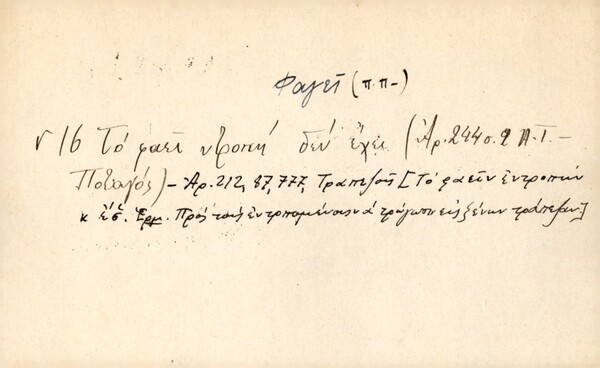 Φαγεῖ (π.π.-)
16 Τό φαεῖ ντροπή δέν ἔχει (Ἀρ. 244 σ. 2 Π.Γ. -
Ποταγός) - Ἀρ. 212, 87, 777, Τραπεζοῦς [Τό φαεῖν ἐντροπήν
κ̓ ἔσ̌. Ἑρμ. Πρός τούς ἐντρεπομένους νά τρώγωσιν εἰς ξένην τράπεζαν]